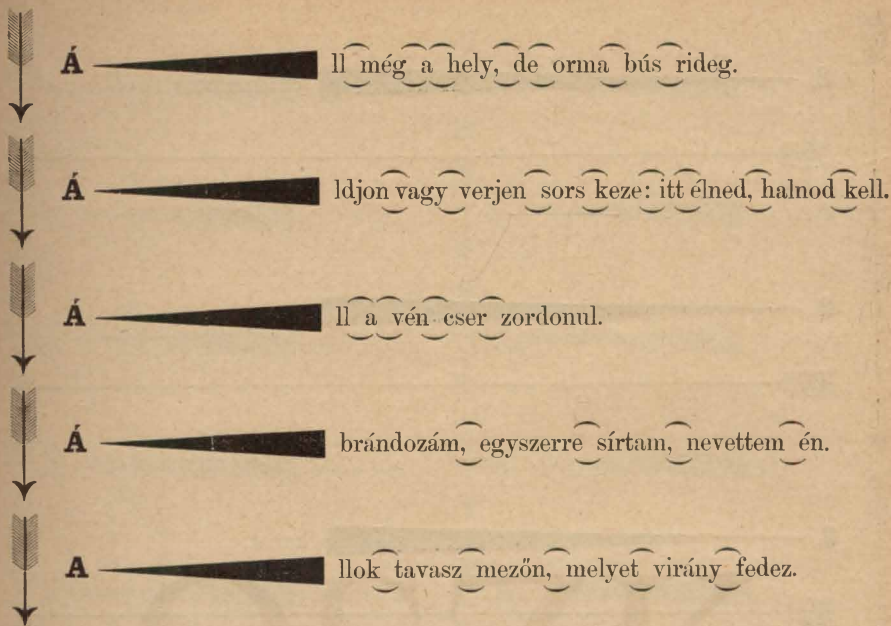 Á ll még a hely, de orma bús rideg.
Á ldjon vagy verjen sors keze: itt élned, halnod kell.
Á ll a vén cser zordonul.
Á brándozám, egyszerre sírtam, nevettem én.
A llok tavasz mezőn, melyet virány fedez.